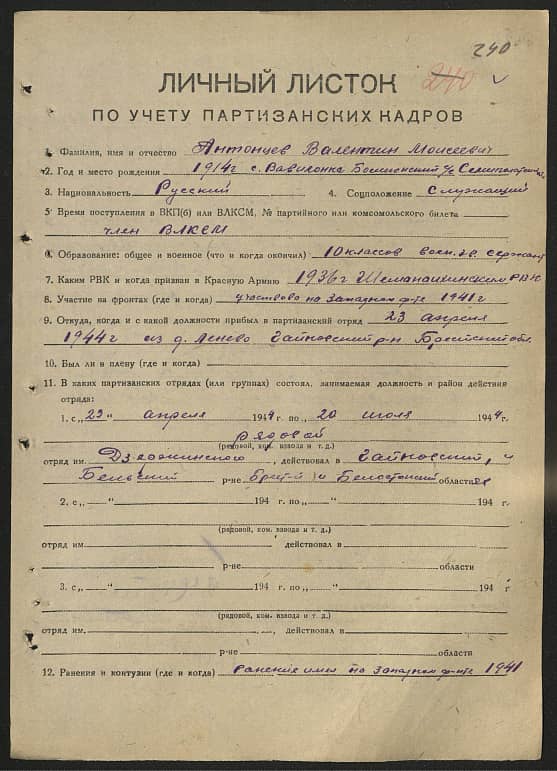 240
ЛИЧНЫЙ ЛИСТОК 240
ПО УЧЕТУ ПАРТИЗАНСКИХ КАДРОВ
1. Фамилия, имя и отчество Антонцев Валентин Моисеевич
2. Год и место рождения 1914г с. Вавилонка
3. Национальность Русский 4. Соцположение Служащий
5 Время поступления в ВКП(б) или ВЛКСМ, № партийного или комсомольского билета
член ВЛКСМ
6. Образование: общее и военное (что и когда окончил) 10 классов воен. зв. сержант
7. Каким РВК и когда призван в Красную Армию 1936г РВК
8. Участие на фронтах (где и когда) участвово на Западном ф-те 1941г
9. Откуда, когда и с какой должности прибыл в партизанский отряд 23 апреля
1944г из д. Ленево Гайновский р-н Брестский обл.
10. Был ли в плену (где и когда)
11. В каких партизанских отрядах (или группах) состоял, занимаемая должность и район действия
отряда:
1. с „23“ апреля 1944 г. по „20 июля 1944 г.
рядовой
(рядовой, ком. взвода и т. д.)
отряд им. Дзержинского, действовал в Гайновский, и
Бельский р-не Брест-й и Белостокский области
2. с „ “ 194 г. по „ “ 194 г.
(рядовой, ком. взвода и т. д.)
отряд им. действовал в
р-не области
3. с „ “ 194 г. по „ “ 194 г
(рядовой, ком. взвода и т. д.)
отряд им. , действовал в
р-не области
12. Ранения и контузии (где и когда) ранение имел на Западном ф-те 1941